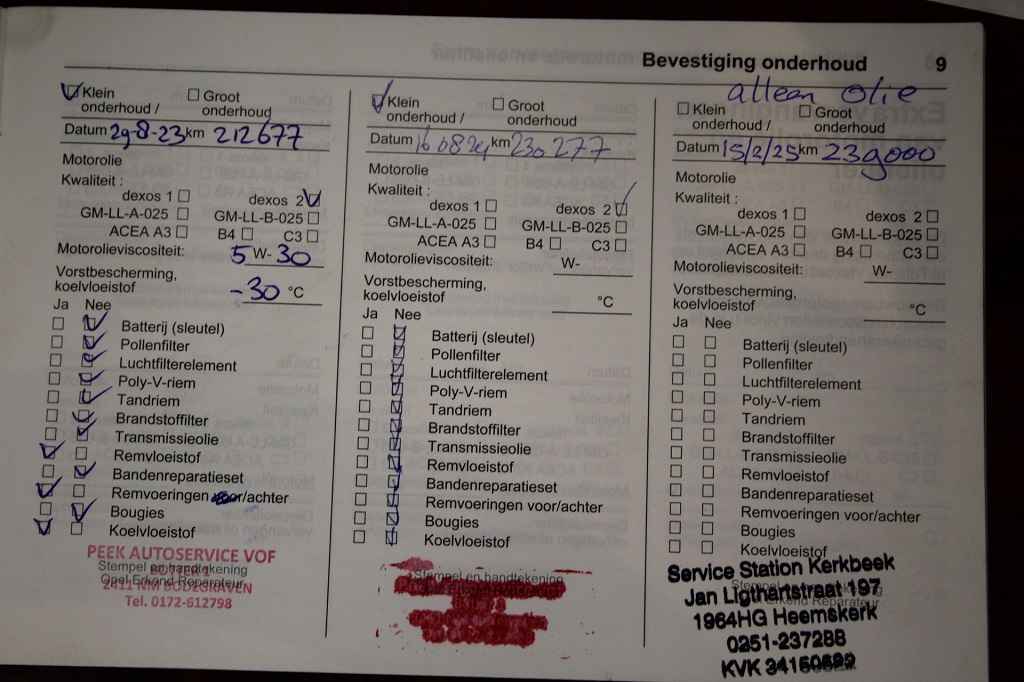 Bevestiging onderhoud 9
Klein onderhoud / Groot onderhoud
Datum 29-8-23 km 212677
Motorolie
Kwaliteit :
dexos 1 dexos 2
GM-LL-A-025 GM-LL-B-025
ACEA A3 B4 C3
Motorolieviscositeit: 5 W- 30
Vorstbescherming,
koelvloeistof -30 °C
Ja Nee
Batterij (sleutel)
Pollenfilter
Luchtfilterelement
Poly-V-riem
Tandriem
Brandstoffilter
Transmissieolie
Remvloeistof
Bandenreparatieset
Remvoeringen voor/achter
Bougies
Koelvloeistof
PEEK AUTOSERVICE VOF
Stempel en handtekening
Opel Erkend Reparateur
2411 NM BODEGRAVEN
Tel. 0172-612798
Klein onderhoud / Groot onderhoud
Datum 16 08 24 km 230 277
Motorolie
Kwaliteit :
dexos 1 dexos 2
GM-LL-A-025 GM-LL-B-025
ACEA A3 B4 C3
Motorolieviscositeit: W-
Vorstbescherming,
koelvloeistof °C
Ja Nee
Batterij (sleutel)
Pollenfilter
Luchtfilterelement
Poly-V-riem
Tandriem
Brandstoffilter
Transmissieolie
Remvloeistof
Bandenreparatieset
Remvoeringen voor/achter
Bougies
Koelvloeistof
Stempel en handtekening
alleen olie
Klein onderhoud / Groot onderhoud
Datum 15/2/25 km 239000
Motorolie
Kwaliteit :
dexos 1 dexos 2
GM-LL-A-025 GM-LL-B-025
ACEA A3 B4 C3
Motorolieviscositeit: W-
Vorstbescherming,
koelvloeistof °C
Ja Nee
Batterij (sleutel)
Pollenfilter
Luchtfilterelement
Poly-V-riem
Tandriem
Brandstoffilter
Transmissieolie
Remvloeistof
Bandenreparatieset
Remvoeringen voor/achter
Bougies
Koelvloeistof
Service Station Kerkbeek
Jan Ligthartstraat 197
Erkend Reparateur
1964HG Heemskerk
0251-237288
KVK